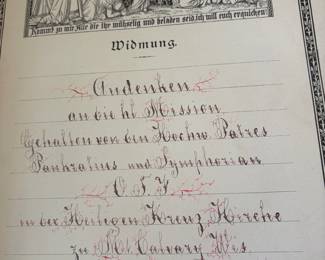 Kommt zu mir Alle die ihr mühselig und beladen seid, ich will euch erquicken!
Widmung.
Andenken
an die hl. Mission
Gehalten von den Hochw. Patres
Pankratius und Symphorian
O. S. F.
in der Heiligen Kreuz Kirche
zu Mt. Calvary Wis.